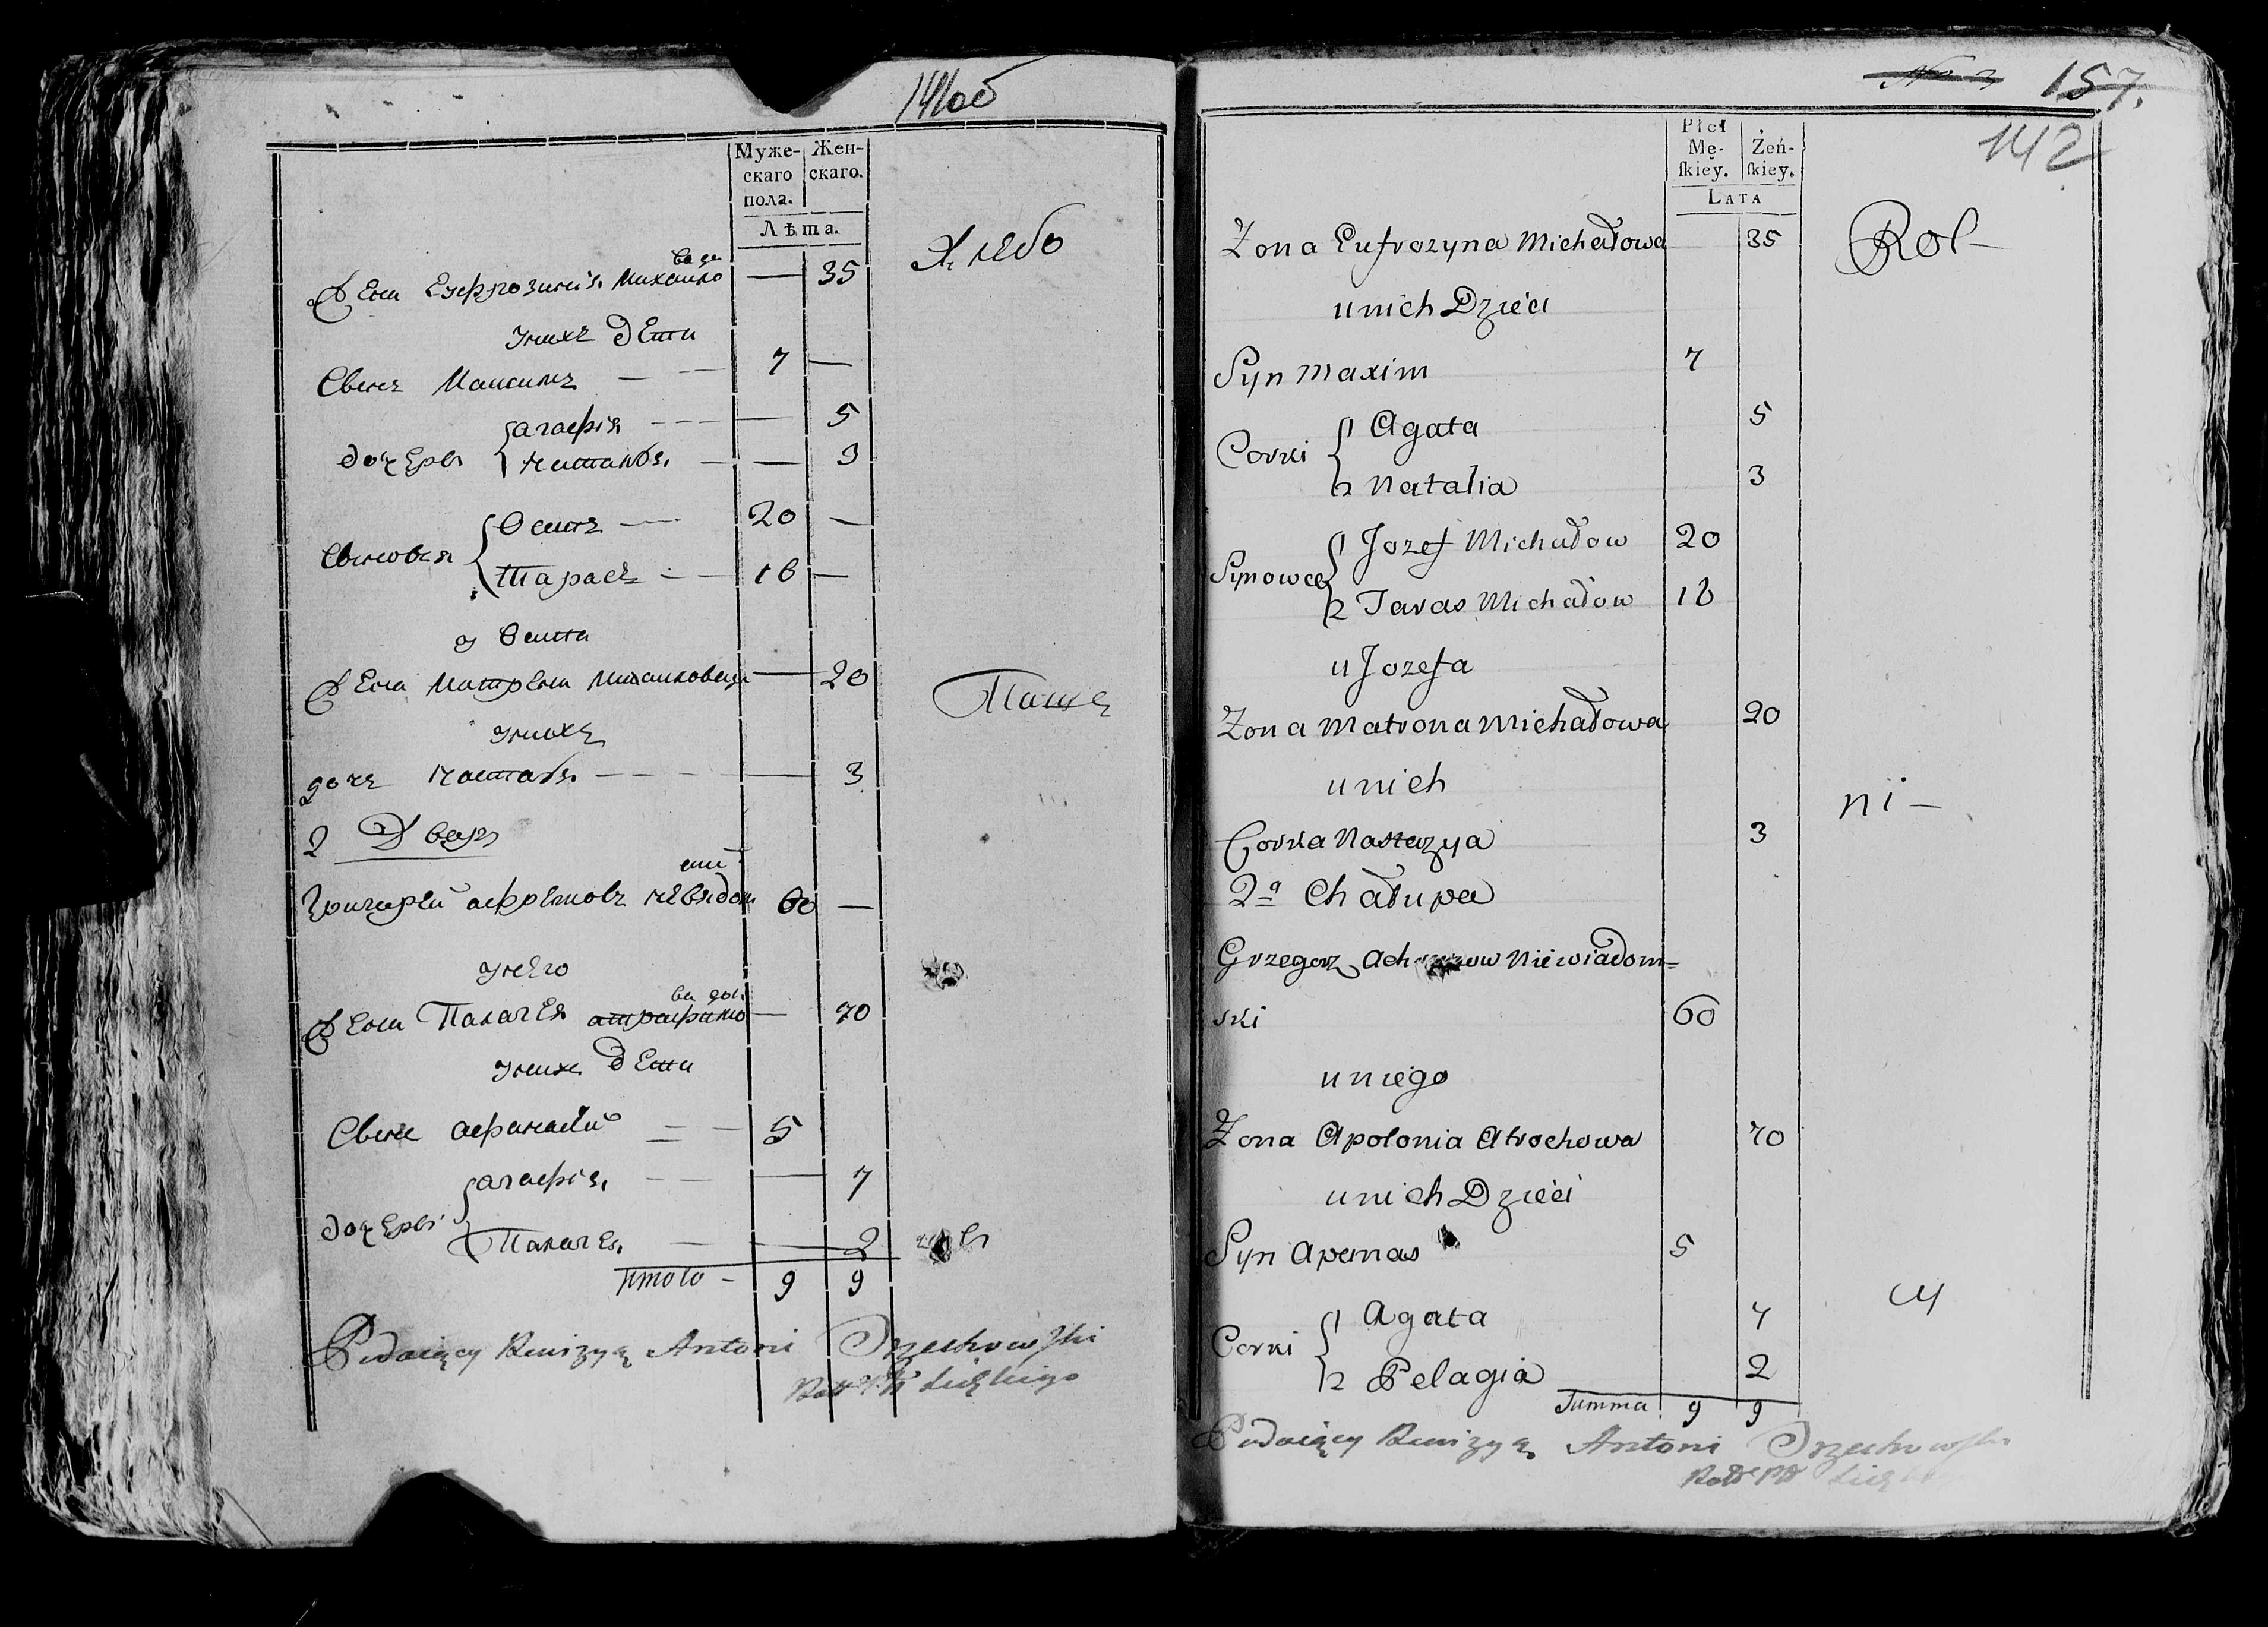 141об
Муже-
скаго
пола.
Жен-
скаго.
Лѣта.
Жена Еуфрозинія Михайло
ва до
— 35
Хлебо
у нихъ дѣти
Сынъ Максимъ — — 7 —
дочеры { агафія — — — 5
Наталья — — 3
Сыновья { Осипъ — 20 —
Тарасъ — — 16 —
у Осипа
Жена Матрена Михайловна — 20
Паше
у нихъ
дочь Настася — — — — 3
2 Дворъ
Григорей
60 —
у него
Жена Палагея
ва доч.
— 70
у нихъ дѣти
Сынъ афанасій — — 5
дочеры { агафія — — — 7
Палагея — — 2
итого — 9 9
Podaiący Rewizyą Antoni Orzechowski
157.
142
Płci
Mę-
ſkiey.
Żeń-
ſkiey.
LATA
Zona Eufrozyna Michałowa 35
Rol-
u nich Dzieci
Syn Maxim 7
Corki { 1 Agata 5
2 Natalia 3
Synowce { 1 Jozef Michałow 20
2 Taras Michałow 16
u Jozefa
Zona Matrona Michałowa 20
u nich
ni-
Corka Nastazya 3
2a Chałupa
Grzegorz Niewiadom=
ski 60
u niego
Zona Apolonia Atrochowa 70
u nich Dzieci
Syn Apanas 5
cy
Corki { 1 Agata 7
2 Pelagia 2
Summa 9 9
Podaiący Rewizyą Antoni Orzechowski